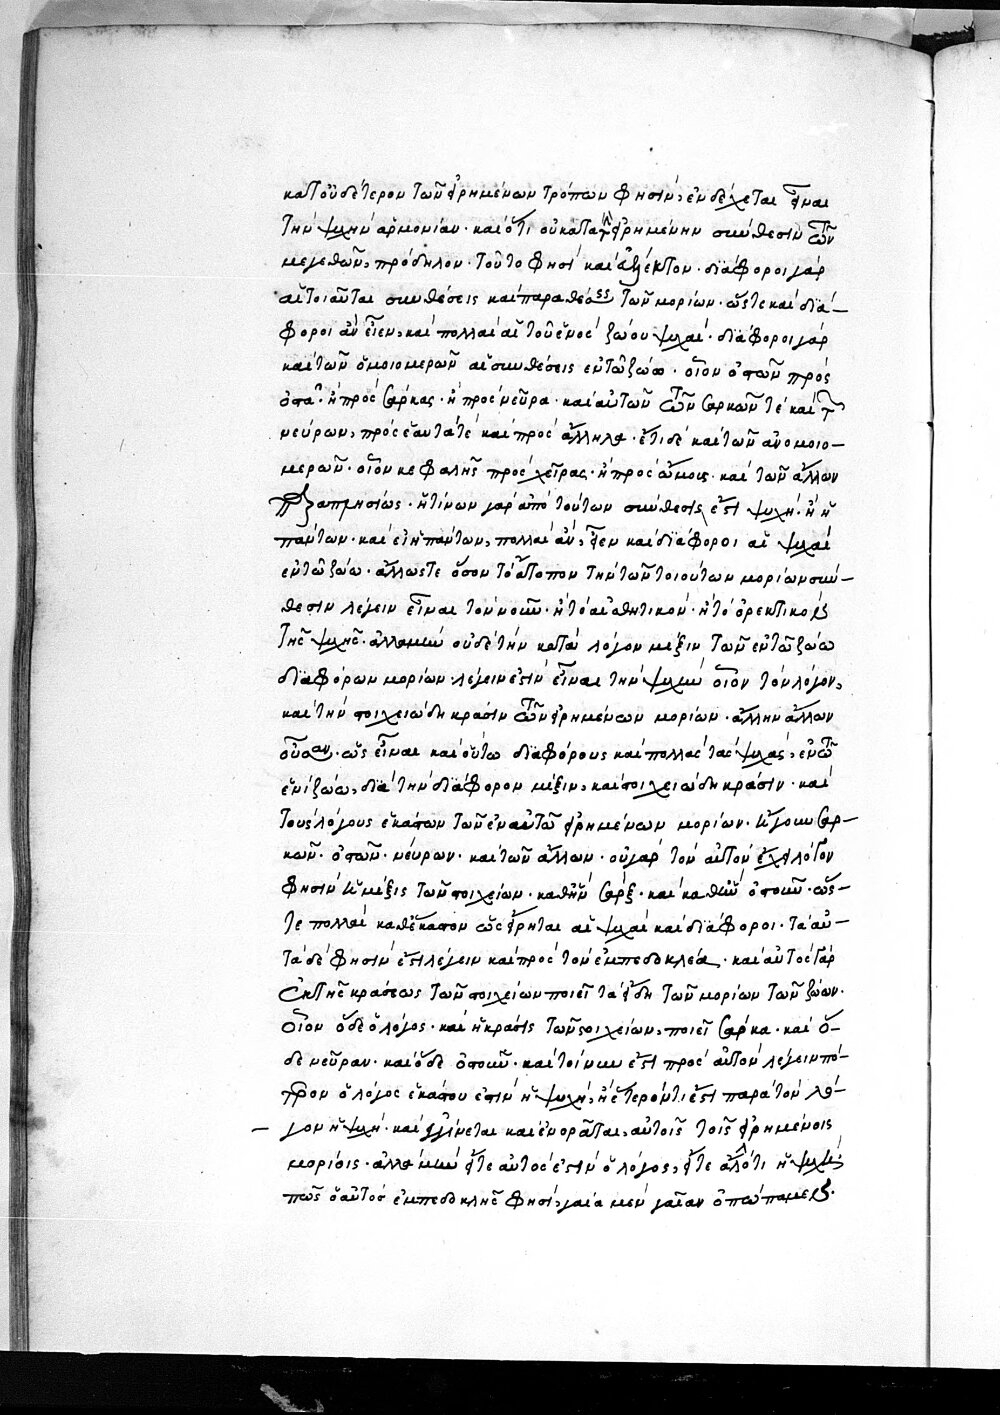 κατ' οὐδέτερον τῶν εἰρημένων τρόπων φησὶν, ἐνδέχεται εἶναι
τὴν ψυχὴν ἁρμονίαν· καὶ ὅτι οὐ κατὰ τὴν εἰρημένην σύνθεσιν τῶν
μεγεθῶν, πρόδηλον· τοῦτο φησὶ καὶ εὐεξέλεγκτον· διάφοροι γὰρ
αἱ τοιαῦται συνθέσεις καὶ παραθέσεις τῶν μορίων· ὥστε καὶ διά–
φοροι ἂν εἶεν, καὶ πολλαὶ αἱ τοῦ ἑνὸς ζώου ψυχαί· διάφοροι γὰρ
καὶ τῶν ὁμοιομερῶν αἱ συνθέσεις ἐν τῷ ζώῳ· οἷον ὀστῶν πρὸς
ὀστᾶ· ἢ πρὸς σάρκας· ἢ πρὸς νεῦρα· καὶ αὐτῶν τῶν σαρκῶν τὲ καὶ τῶν
νεύρων, πρὸς ἑαυτά τὲ καὶ πρὸς ἄλληλα· ἔτι δὲ καὶ τῶν ἀνομοιο–
μερῶν· οἷον κεφαλῆς πρὸς χεῖρας· ἢ πρὸς ὤμοις· καὶ τῶν ἄλλων
παραπλησίως· ἢ τίνων γὰρ ἀπὸ τούτων σύνθεσις ἐστὶ ψυχή· ἢ ἡ
πάντων· καὶ εἰ ἡ πάντων, πολλαὶ ἂν, εἶεν καὶ διάφοροι αἱ ψυχαὶ
ἐν τῷ ζώῳ· ἄλλως τε ὅσον τὸ ἄτοπον τὴν τῶν τοιούτων μορίων σύν–
θεσιν λέγειν εἶναι τὸν νοῦν· ἢ τὸ αἰσθητικόν· ἢ τὸ ὀρεκτικὸν
τῆς ψυχῆς· ἀλλὰ μὴν οὐδὲ τὴν κατὰ λόγον μίξιν τῶν ἐν τῷ ζώῳ
διαφόρων μορίων λέγειν ἐστὶν εἶναι τὴν ψυχὴν οἷον τὸν λόγον,
καὶ τὴν στοιχειώδη κρᾶσιν τῶν εἰρημένων μορίων· ἄλλην ἄλλων
οὖσαν· ὡς εἶναι καὶ οὕτω διαφόρους καὶ πολλὰς τὰς ψυχὰς, ἐν τῷ
ἑνὶ ζώῳ, διὰ τὴν διάφορον μίξιν, καὶ στοιχειώδη κρᾶσιν· καὶ
τοὺς λόγους ἑκάστων τῶν ἐν αὐτῷ εἰρημένων μορίων· ἤγουν σαρ–
κῶν· ὀστῶν· νεύρων· καὶ τῶν ἄλλων· οὐ γὰρ τὸν αὐτὸν ἔχει λόγον
φησὶν ἡ μίξις τῶν στοιχείων· καθ' ἣν σάρξ· καὶ καθ' ἣν ὀστοῦν· ὥς–
τε πολλαὶ καθ' ἕκαστον ὡς εἴρηται αἱ ψυχαὶ καὶ διάφοροι· τὰ αὐ–
τὰ δὲ φησὶν ἔστι λέγειν καὶ πρὸς τὸν ἐμπεδοκλέα· καὶ αὐτὸς γὰρ
ἐκ τῆς κράσεως τῶν στοιχείων ποιεῖ τὰ εἴδη τῶν μορίων τῶν ζώων·
οἷον ὅδε ὁ λόγος· καὶ ἡ κρᾶσις τῶν στοιχείων, ποιεῖ σάρκα· καὶ ὅ–
δε νεῦραν· καὶ ὅδε ὀστοῦν· καὶ τοίνυν ἔστι πρὸς αὐτὸν λέγειν πό–
τερον ὁ λόγος ἑκάστου ἐστὶν ἡ ψυχὴ, ἢ ἕτερόν τι ἐστὶ παρὰ τὸν λό–
γον ἡ ψυχή· καὶ γίνεται καὶ ἐνορᾶται, αὐτοῖς τοῖς εἰρημένοις
μορίοις· ἀλλὰ μὴν εἴτε αὐτός ἐστιν ὁ λόγος, εἴτε ἄλλό τι ἡ ψυχή
πῶς ὁ αὐτὸς ἐμπεδοκλῆς φησὶ, γαῖα μὲν γαῖαν ὀπώπαμεν.